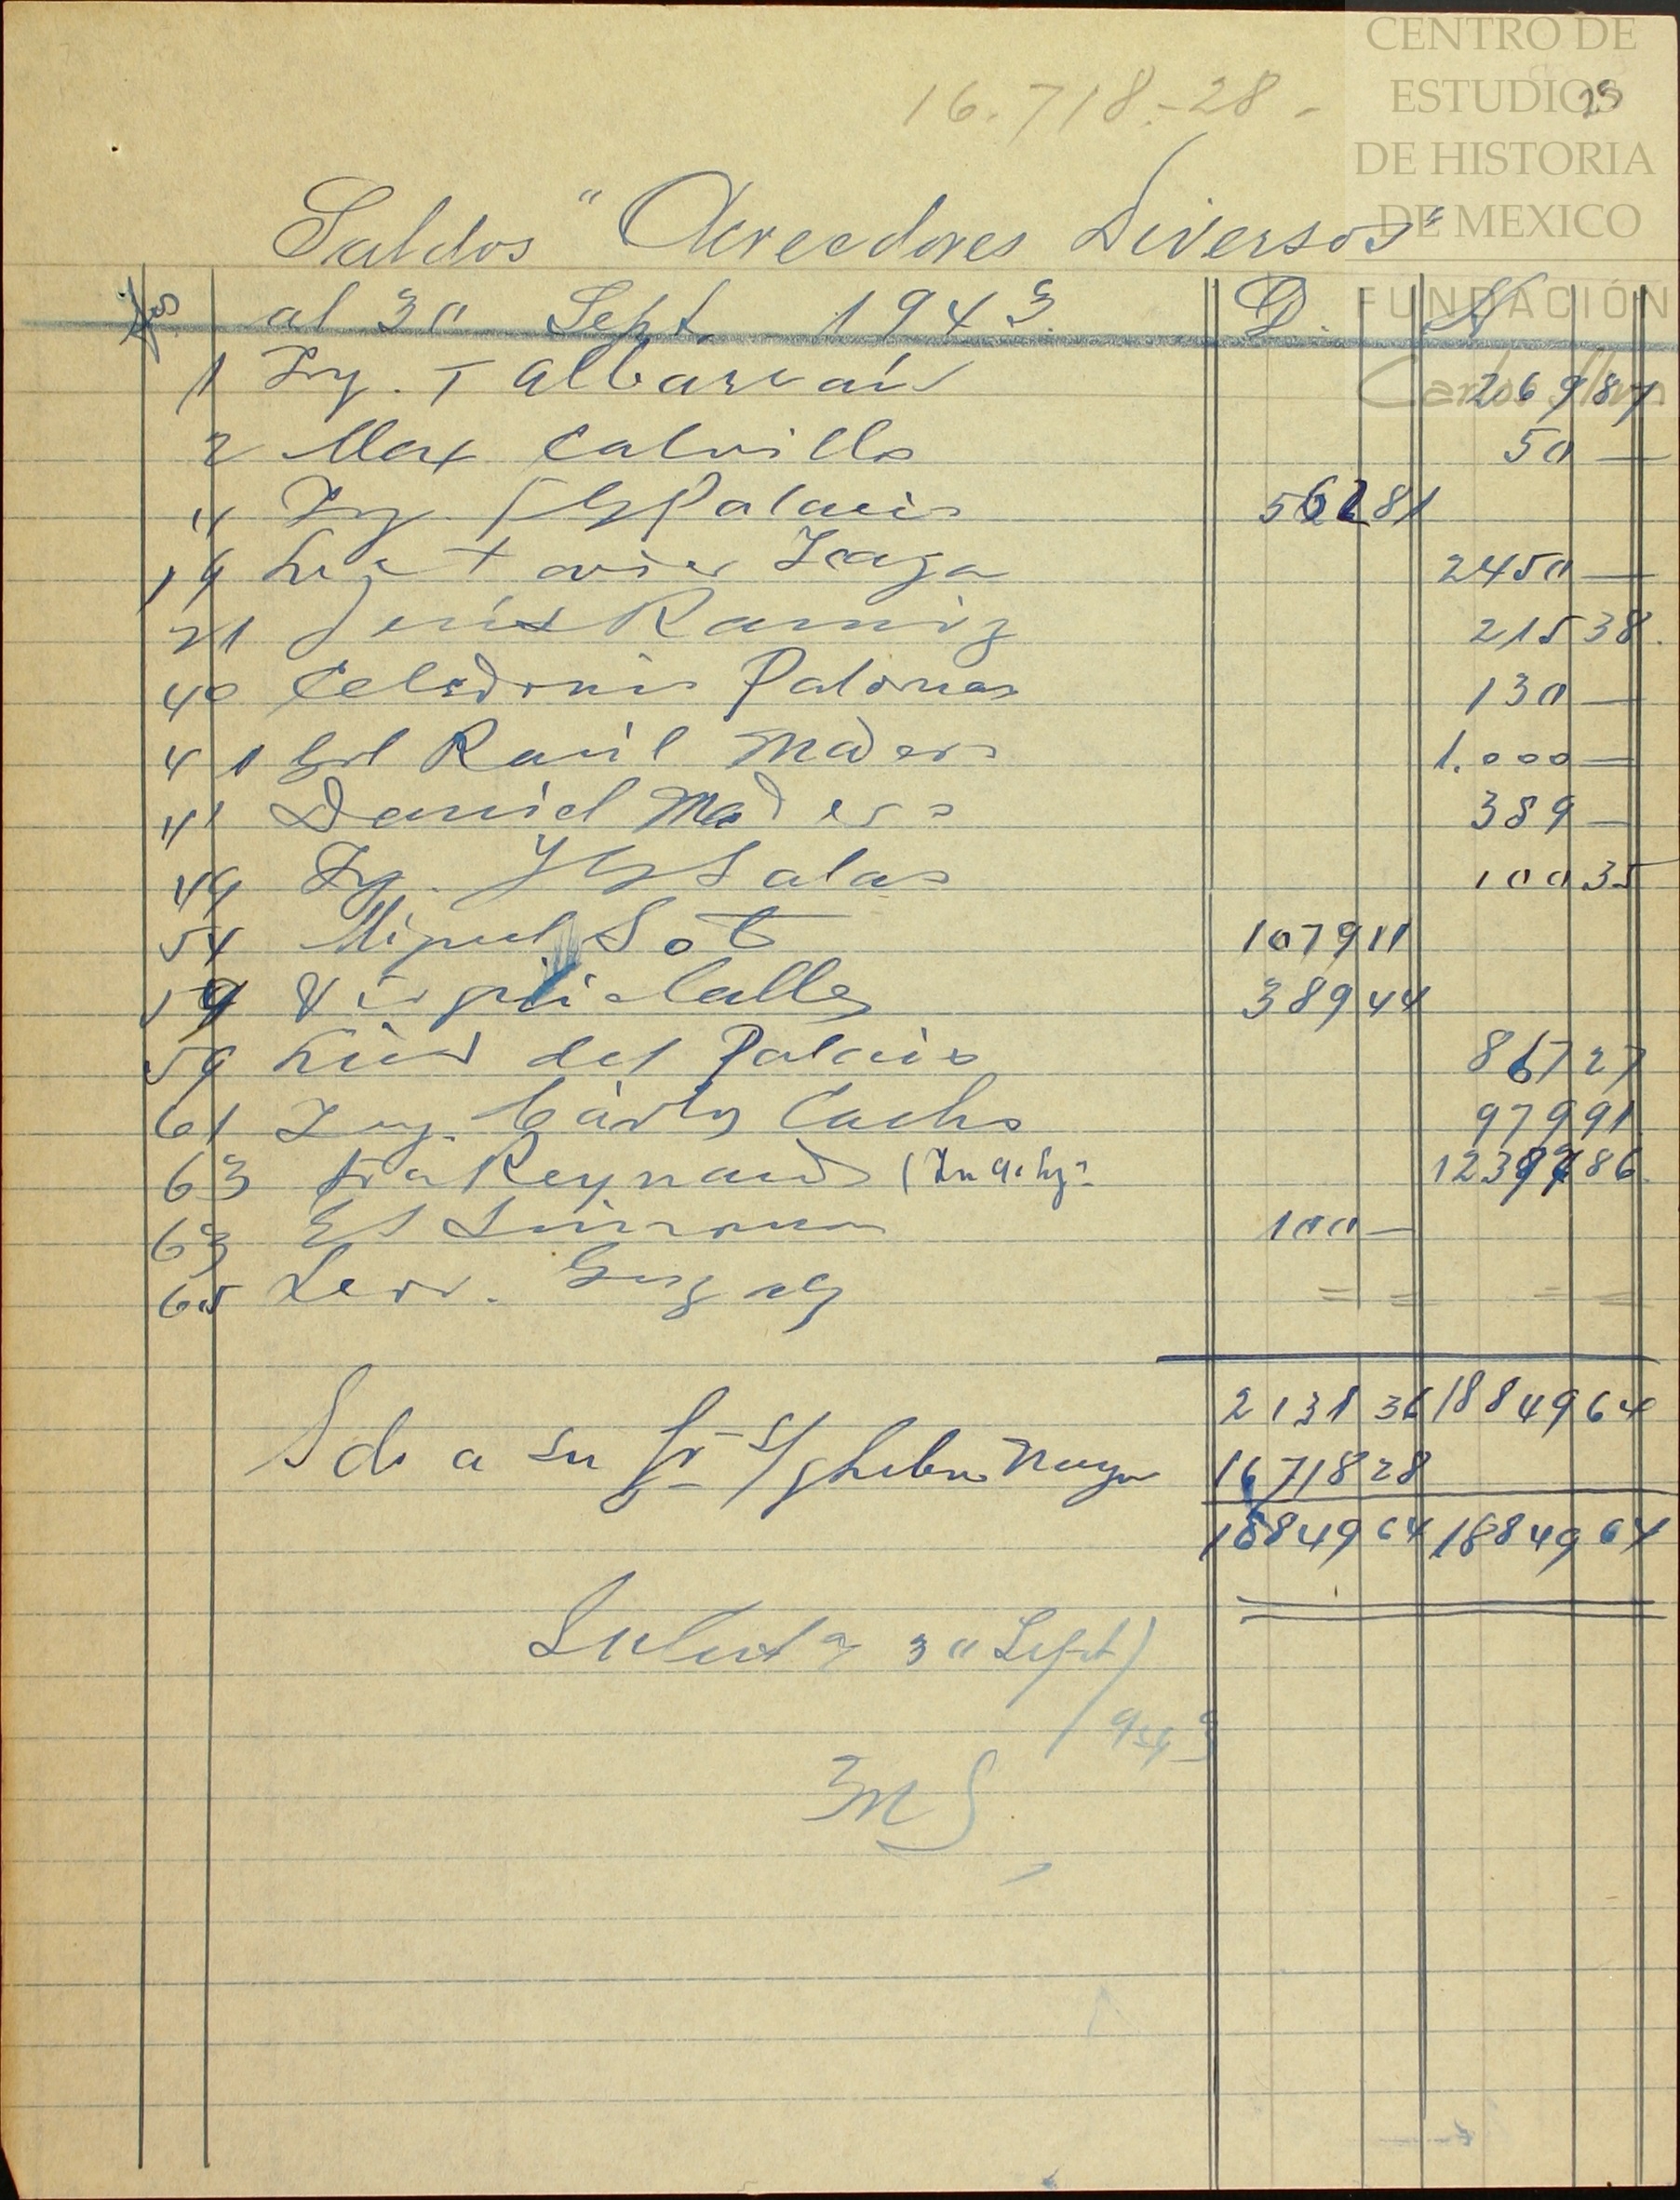 CENTRO DE
ESTUDIOS
DE HISTORIA
DE MEXICO
FUNDACIÓN
Carlos Slim
25
16.718.-28-
Saldos "Acreedores Diversos"
al 30 Sept. 1943. D. H
1 Ing. T Albarrán 269 87
2 Max Calvillo 50 —
4 Ing. Palacio 562 81
19 Lic Javier Icaza 2450 —
21 Jesús Ramirz 215 38.
40 Celedonio Palomas 130 —
41 Gral Raúl Madero 1.000 —
41 Daniel Madero 389 —
49 Ing. Salas 100 35
54 Miguel Soto 1079 11
59 Virgilio Calles 389 44
59 Luis del Palacio 867 27
61 Ing. Carlos Cachs 979 91
63 Fca Reynaud 12397 86
63 100 —
65 Leov. Gonzalez = = = =
2131 36 18849 64
Sdo a su fvr 16718 28
18849 64 18849 64
30 Sept/
1943